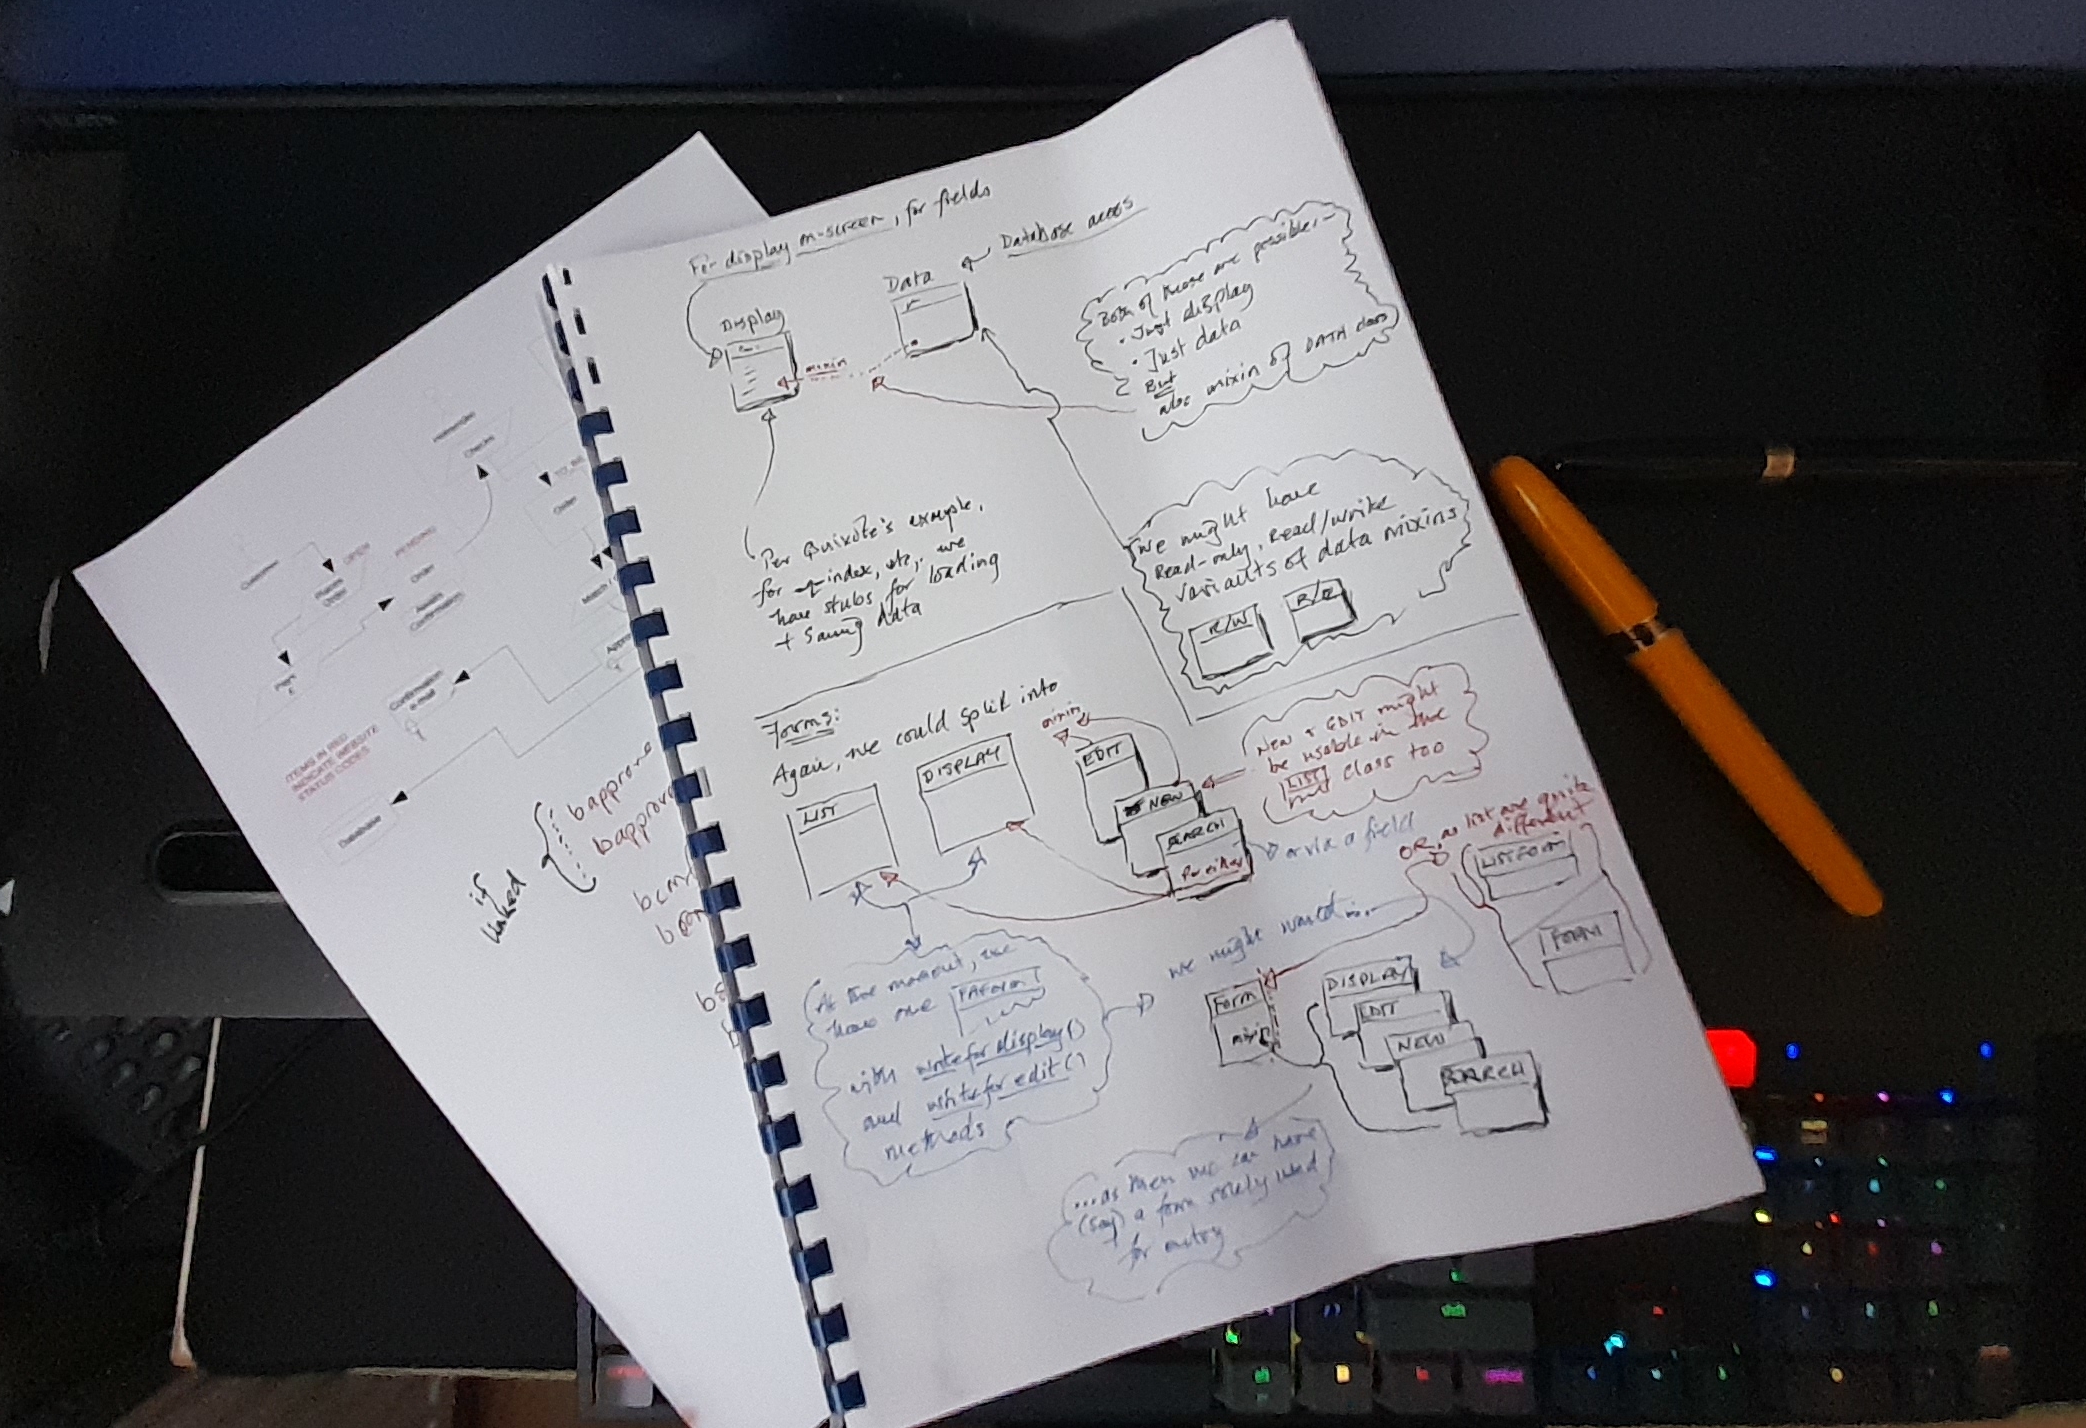 For display on-screen, for fields
Database access
Data
Display
mixin
Both of these are possible:-
• Just display
• Just data
But
also mixin of DATA class
Per Quixote's example,
for q-index, etc, we
have stubs for loading
+ saving data
We might have
Read-only, Read/write
variants of data mixins
R/W
Forms:
Again, we could split into
mixin
LIST
DISPLAY
EDIT
NEW
SEARCH
New + EDIT might
be usable in the
LIST class too
or via a field
OR, as list are quite
different
LISTFORM
FORM
At the moment, we
have one
with writefordisplay()
and writeforedit()
methods
we might want
Form
mixin
DISPLAY
EDIT
NEW
SEARCH
...as then we can have
(say) a form solely used
for entry
Customer
OPEN
PENDING
Order
Order
Confirmation
e-mail
Database
ITEMS IN RED
INDICATE WEBSITE
STATUS CODES
if
linked
bapprove
bapprove